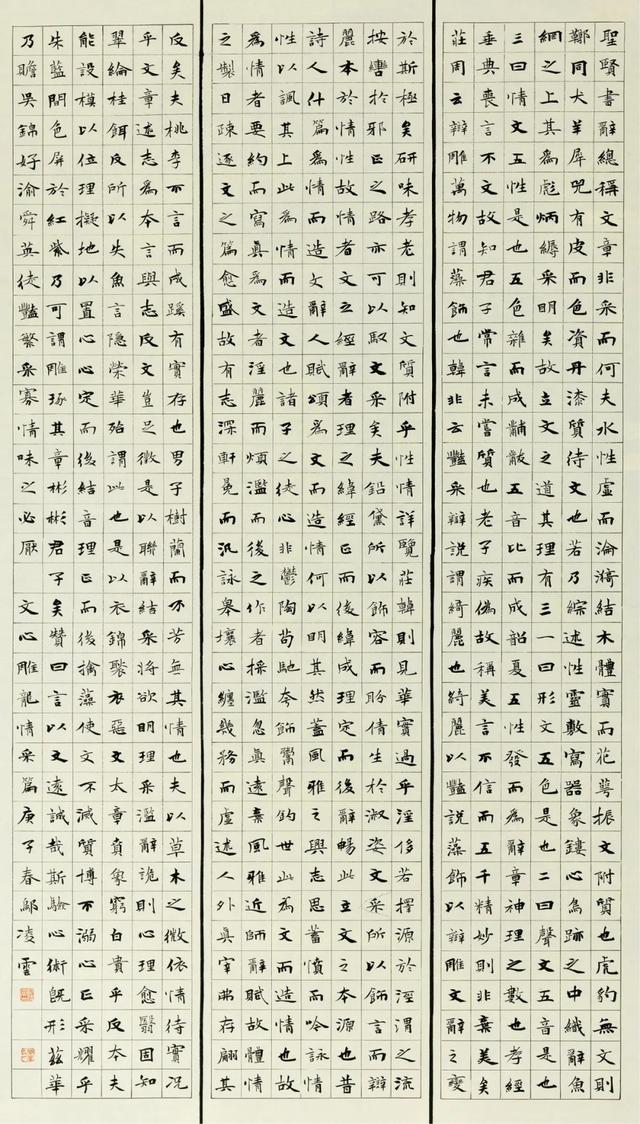 聖賢書辭總稱文章非采而何夫水性虛而淪漪結木體實而花萼振文附質也虎豹無文則
鞹同犬羊犀兕有皮而色資丹漆質待文也若乃綜述性靈敷寫器象鏤心鳥跡之中織辭魚
網之上其為彪炳縟采明矣故立文之道其理有三一曰形文五色是也二曰聲文五音是也
三曰情文五性是也五色雜而成黼黻五音比而成韶夏五性發而為辭章神理之數也孝經
垂典喪言不文故知君子常言未嘗質也老子疾偽故稱美言不信而五千精妙則非棄美矣
莊周云辯雕萬物謂藻飾也韓非云豔采辯說謂綺麗也綺麗以豔說藻飾以辯雕文辭之變
於斯極矣研味孝老則知文質附乎性情詳覽莊韓則見華實過乎淫侈若擇源於涇渭之流
按轡於邪正之路亦可以馭文采矣夫鉛黛所以飾容而盼倩生於淑姿文采所以飾言而辯
麗本於情性故情者文之經辭者理之緯經正而後緯成理定而後辭暢此立文之本源也昔
詩人什篇為情而造文辭人賦頌為文而造情何以明其然蓋風雅之興志思蓄憤而吟詠情
性以諷其上此為情而造文也諸子之徒心非鬱陶苟馳夸飾鬻聲釣世此為文而造情也故
為情者要約而寫真為文者淫麗而煩濫而後之作者採濫忽真遠棄風雅近師辭賦故體情
之製日疎逐文之篇愈盛故有志深軒冕而汎詠皋壤心纏幾務而虛述人外真宰弗存翩其
反矣夫桃李不言而成蹊有實存也男子樹蘭而不芳無其情也夫以草木之微依情待實況
乎文章述志為本言與志反文豈足徵是以聯辭結采將欲明理采濫辭詭則心理愈翳固知
翠綸桂餌反所以失魚言隱榮華殆謂此也是以衣錦褧衣惡文太章賁象窮白貴乎反本夫
能設模以位理擬地以置心心定而後結音理正而後摛藻使文不滅質博不溺心正采耀乎
朱藍間色屏於紅紫乃可謂雕琢其章彬彬君子矣贊曰言以文遠誠哉斯驗心術既形茲華
乃贍吳錦好渝舜英徒豔繁采寡情味之必厭 文心雕龍情采篇庚子春鄔凌雲